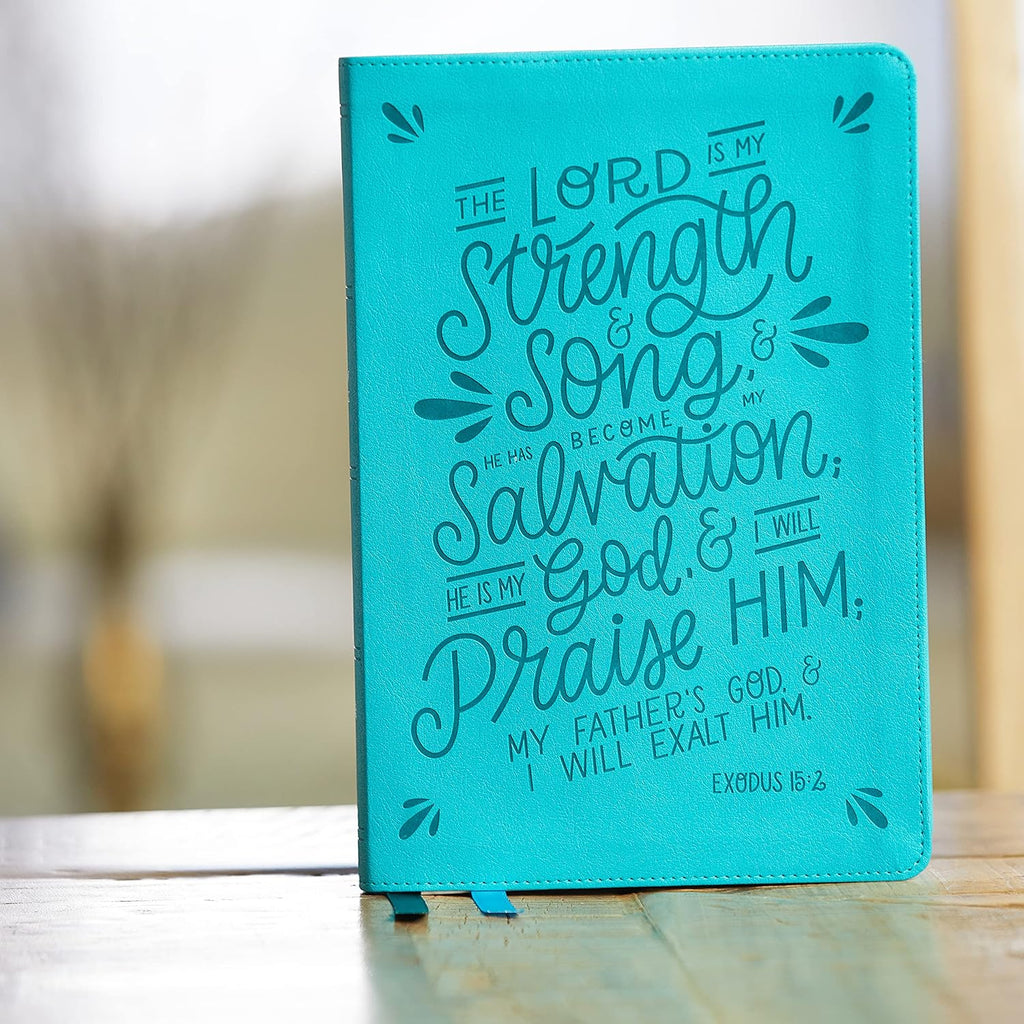 THE LORD IS MY
Strength
& Song, &
HE HAS BECOME MY
Salvation;
HE IS MY God, & I WILL
Praise HIM;
MY FATHER'S GOD, &
I WILL EXALT HIM.
EXODUS 15:2